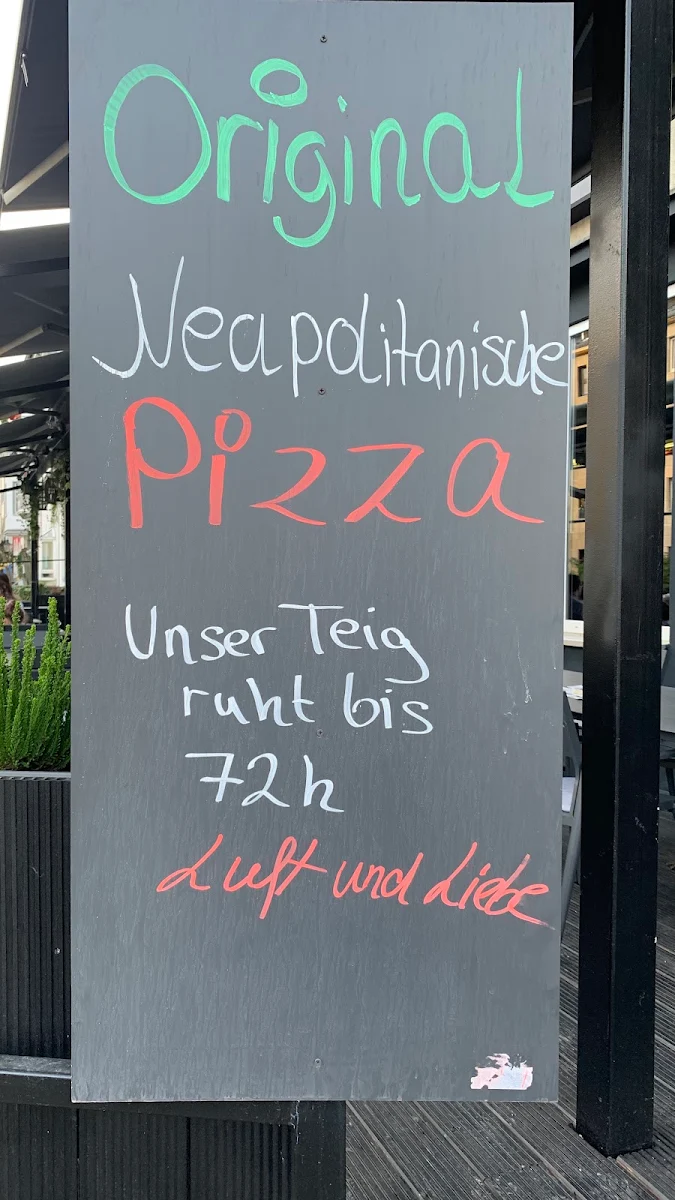 Original
Neapolitanische
Pizza
Unser Teig
ruht bis
72h
Luft und Liebe